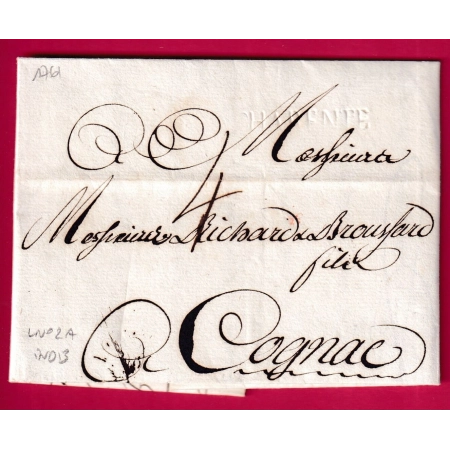 1761
Messieurs
4
Messieurs Richard & Broussard
fils
A Cognac
LN°2A
IND13